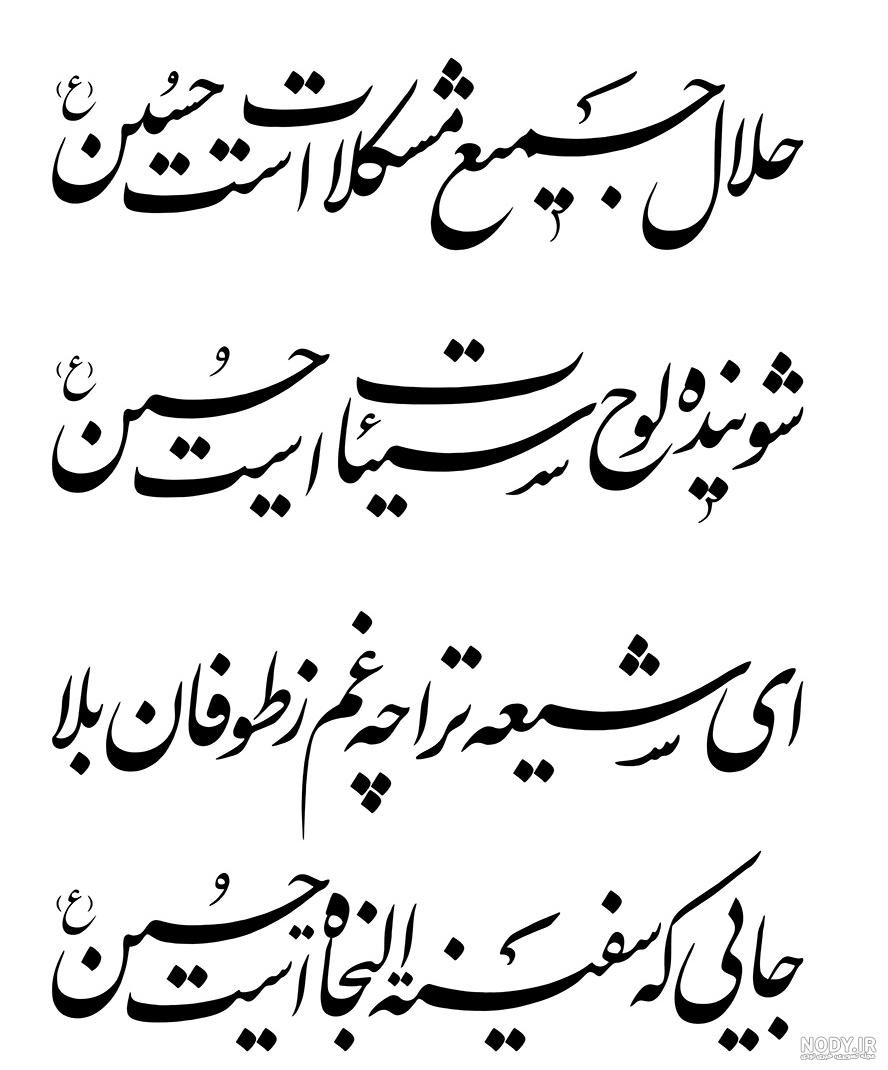 حلال جمیع مشکلات است حسین (ع)
شوینده لوح سیئات است حسین (ع)
ای شیعه ترا چه غم ز طوفان بلا
جایی که سفینة النجاه است حسین (ع)
NODY.IR